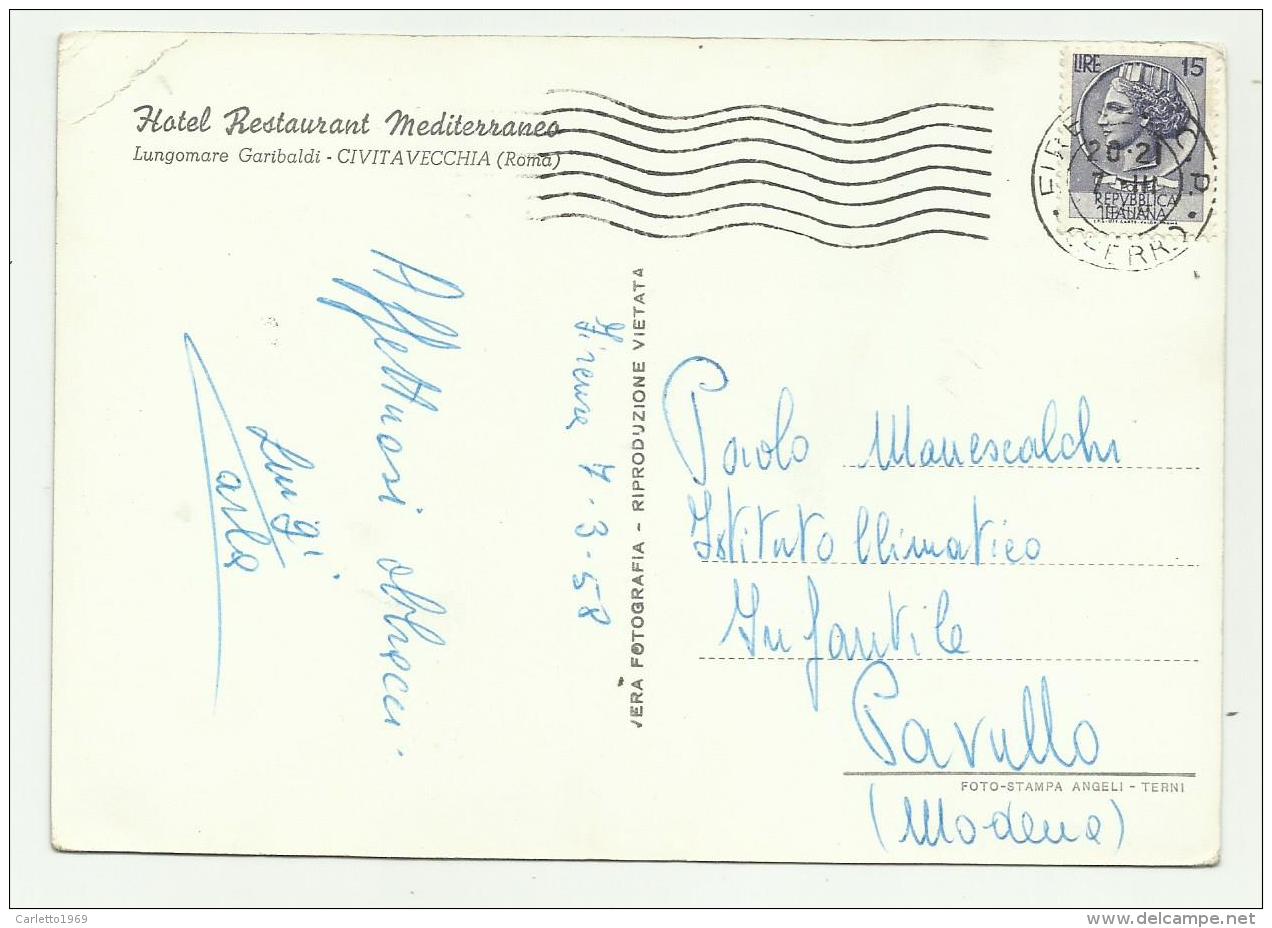 Hotel Restaurant Mediterraneo
Lungomare Garibaldi - CIVITAVECCHIA (Roma)
LIRE 15
REPVBBLICA
ITALIANA
20·21
7 - III
FERR
Affettuosi abbracci.
Luigi
Carla
Firenze 7-3-58
VERA FOTOGRAFIA - RIPRODUZIONE VIETATA
Paolo Manescalchi
Istituto Climatico
Infantile
Pavullo
FOTO-STAMPA ANGELI - TERNI
(Modena)
Carletto1969
delcampe.net